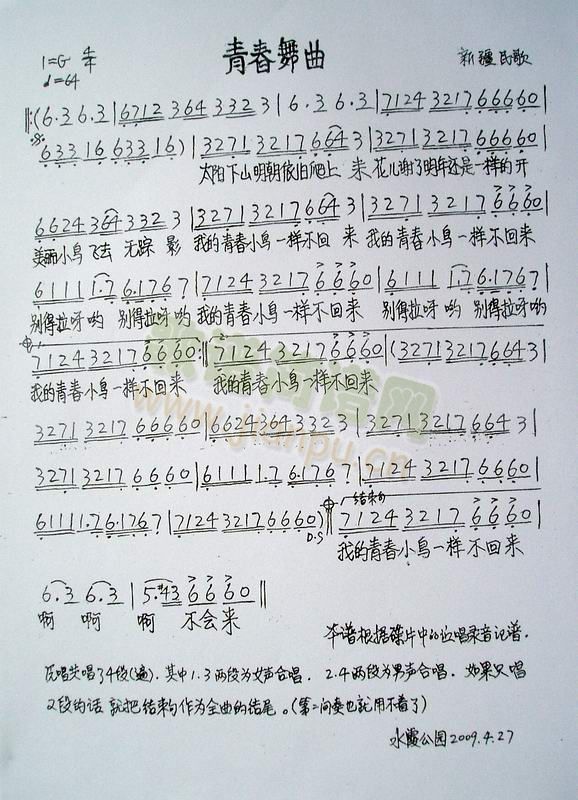 青春舞曲
1=G 4/4
♩=64
新疆民歌
‖:(6.3 6.3|6712 364 332 3|6.3 6.3|7124 3217 66660|
633 16 633 16)|3271 3217 664 3|3271 3217 66660|
太阳下山明朝依旧爬上 来 花儿谢了明年还是一样的开
6624 364 332 3|3271 3217 664 3|3271 3217 6660|
美丽小鸟飞去 无踪 影 我的青春小鸟一样不回 来 我的青春小鸟一样不回来
6111 1.7 6.176 7|7124 3217 6660|6111 1.7 6.176 7|
别得拉呀哟 别得拉呀哟 我的青春小鸟一样不回来 别得拉呀哟 别得拉呀哟
7124 3217 6660:‖7124 3217 6660|(3271 3217 664 3|
我的青春小鸟一样不回来 我的青春小鸟一样不回来
3271 3217 66660|6624 364 332 3|3271 3217 664 3|
3271 3217 6660|61111 1.7 6.176 7|7124 3217 66660|
61111 1.7 6.176 7|7124 3217 6660)‖7124 3217 6660|
结束句
D.S
我的青春小鸟一样不回来
6.3 6.3|5.#43 6660‖
啊 啊 啊 不会来
本谱根据碟片中的演唱录音记谱.
演唱共唱了4段(遍).其中1.3两段为女声合唱. 2.4两段为男声合唱. 如果只唱
2段的话 就把结束句作为全曲的结尾。(第二间奏也就用不着了)
水霞公园2009.4.27
www.jianpu.cn